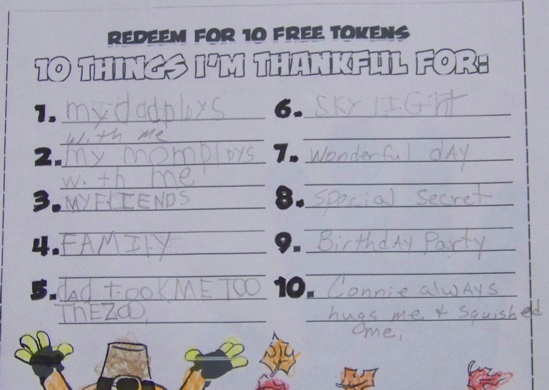 REDEEM FOR 10 FREE TOKENS
10 THINGS I'M THANKFUL FOR:
1. my dad plays
with me
2. my mom plays
with me
3. MY FRIENDS
4. FAMILY
5. dAd tOOK ME TOO
THE ZOO,
6. SKY LIGHt
7. Wonderful dAy
8. Special Secret
9. BirthdAy Party
10. Connie alwAys
hugs me & Squished
me,